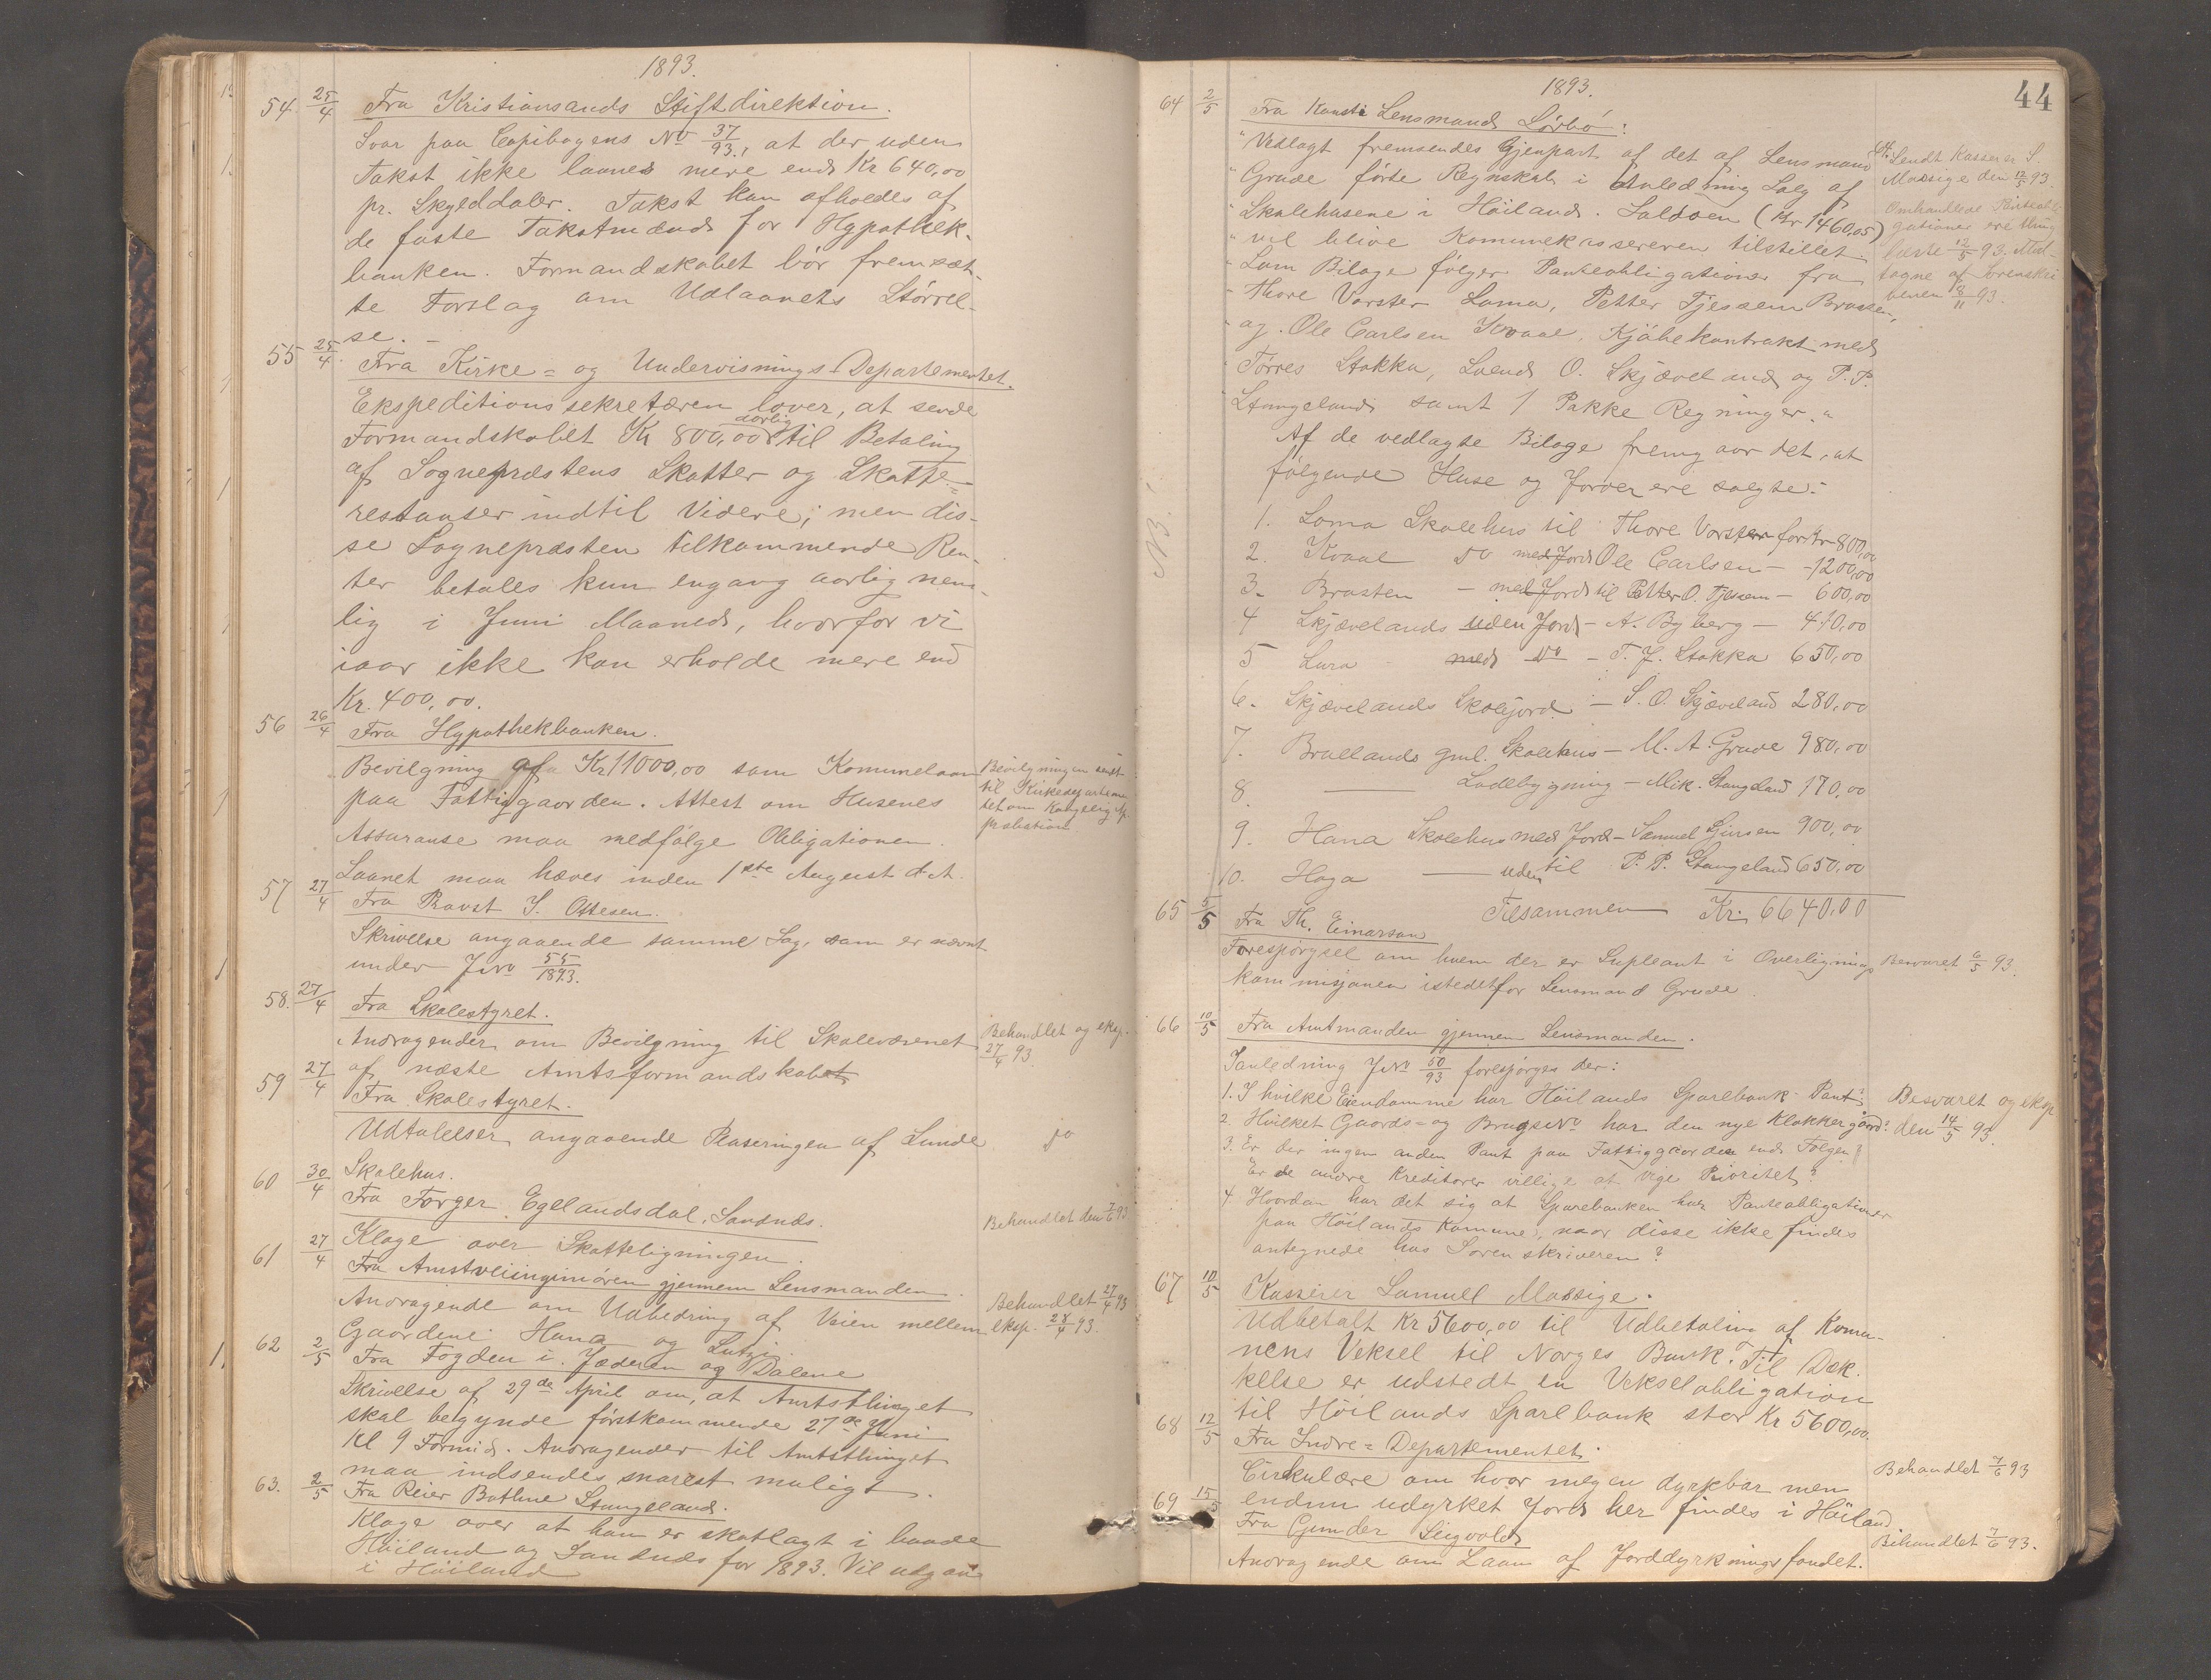 1893.
54. 25/4 Fra Kristiansands Stiftdirektion.
Svar paa Copibogens No 37/93., at der uden
Takst ikke laanes mere end Kr 640,00
pr. Skylddaler. Takst kan afholdes af
de faste Takstmænd for Hypothek-
banken. Formandskabet bør fremsæt-
te Forslag om Udlaanets Størrel-
se. -
55 25/4. Fra Kirke- og Undervisnings-Departementet.
Ekspeditionssekretæren lover, at sende
Formandskabet Kr 800,00 aarlig til Betaling
af Sognepræstens Skatter og Skatte-
restanser indtil Videre; men dis-
se Sognepræsten tilkommende Ren-
ter betales kun engang aarlig nem-
lig i Juni Maaned, hvorfor vi
iaar ikke kan erholde mere end
Kr. 400,00.
56 26/4 Fra Hypothekbanken.
Bevilgning af Kr 11000,00 som Komunelaan
paa Fattiggaarden. Attest om Husenes
Assuranse maa medfølge Obligationen.
Laanet maa hæves inden 1ste August d.A.
Bevilgningen sendt
til Kirkedepartemen
tet om Kongelig Ap-
probation
57 27/4 Fra Provst S. Ottesen.
Skrivelse angaaende samme Sag, som er nævnt
under JNo 55/1893.
58. 27/4 Fra Skolestyret.
Andragender om Bevilgning til Skolevæsenet
af næste Amtsformandskab
Behandlet og eksp.
27/4 93
59 27/4 Fra Skolestyret.
Udtalelser angaaende Plaseringen af Lunde
Skolehus.
do
60 30/4 Fra Torger Egelandsdal, Sandnæs.
Klage over Skatteligningen.
Behandlet den 7/6 93
61 27/4 Fra Amtsveiingeniøren gjennem Lensmanden.
Andragende om Udbedring af Veien mellem
Gaardene Hana og Lutsi.
Behandlet 27/4 93
eksp. 28/4 93.
62 2/5 Fra Fogden i Jæderen og Dalene
Skrivelse af 29de April om, at Amtsthinget
skal begynde førstkommende 27de Juni
Kl 9 Formid. Andragender til Amtsthinget
maa indsendes snarest muligt.
63. 2/5 Fra Reier Bothne Stangeland.
Klage over at han er skatlagt i baade
Høiland og Sandnæs for 1893. Vil udgaa
i Høiland
44
1893.
64 2/5 Fra Konst. Lensmand Lørbó:
"Vedlagt fremsendes Gjenpart af det af Lensmand
"Grude førte Regnskab i Anledning Salg af
"Skolehusene i Høiland. Saldoen (Kr 1460,05)
"vil blive Komunekassereren tilstillet.
"Som Bilage følger Panteobligationer fra
"Thore Vorster Soma, Petter Tjessem Brasten,
"og Ole Carlsen Kvaal, Kjøbekontrakt med
"Tørres Stokka, Svend O. Skjæveland og P. P.
"Stangeland samt 1 Pakke Regninger."
64. Sendt Kasserer S.
Massige den 12/5 93.
Omhandlede Panteobli-
gationer ere thing
læste 12/5 93. Mod-
tagne af Sorenskri
veren 3/11 93.
Af de vedlagte Bilage fremgaar det, at
følgende Huse og Jorder ere solgte:
NB.
1. Soma Skolehus til Thore Vorster for Kr 800,00
2. Kvaal do med Jord Ole Carlsen - - 1200,00
3. Brasten - med Jord til Petter O. Tjessem - 600,00
4 Skjævelands uden Jord - A. Byberg - 410,00
5 Lura - med do - T. J. Stokka 650,00
6. Skjævelands Skolejord - S. O. Skjæveland 280,00
7. Bruelands gml. Skolehus - M. A. Grude 980,00
8. Ladebygning - Mik. Stangeland 170,00
9. Hana Skolehus med Jord - Samuel 900,00
10. Hoga - uden til P. P. Stangeland 650,00
Tilsammen Kr. 6640,00
65 5/5 Fra Th. Einarson
Forespørgsel om hvem der er Supleant i Overlignings
kommisjonen istedetfor Lensmand Grude.
Besvaret 6/5 93.
66 10/5 Fra Amtmanden gjennem Lensmanden.
I anledning JNo 50/93 forespørges der:
1. I hvilke Eiendomme har Høilands Sparebank Pant?
2. Hvilket Gaards- og BrugsNo har den nye Klokkergaard?
3. Er der ingen anden Pant paa Fattiggaarden end Følgen?
Er de andre Kreditorer villige at vige Prioritet?
4. Hvordan har det sig at Sparebanken har Panteobligationer
paa Høilands Komune, naar disse ikke findes
antegnede hos Sorenskriveren?
Besvaret og eksp
den 14/5 93.
67 10/5 Kasserer Samuel Massige.
Udbetalt Kr 5600,00 til Udbetaling af Komu-
nens Veksel til Norges Bank. Til Dæk-
kelse er udstedt en Vekselobligation
til Høilands Sparebank stor Kr 5600,00.
68 12/5 Fra Indre-Departementet.
Cirkulære om hvor megen dyrkbar men
endnu udyrket Jord her findes i Høiland
Behandlet 7/6 93
69 15/5 Fra Gunder Sigvolds
Andragende om Laan af Jorddyrkningsfondet.
Behandlet 7/6 93.